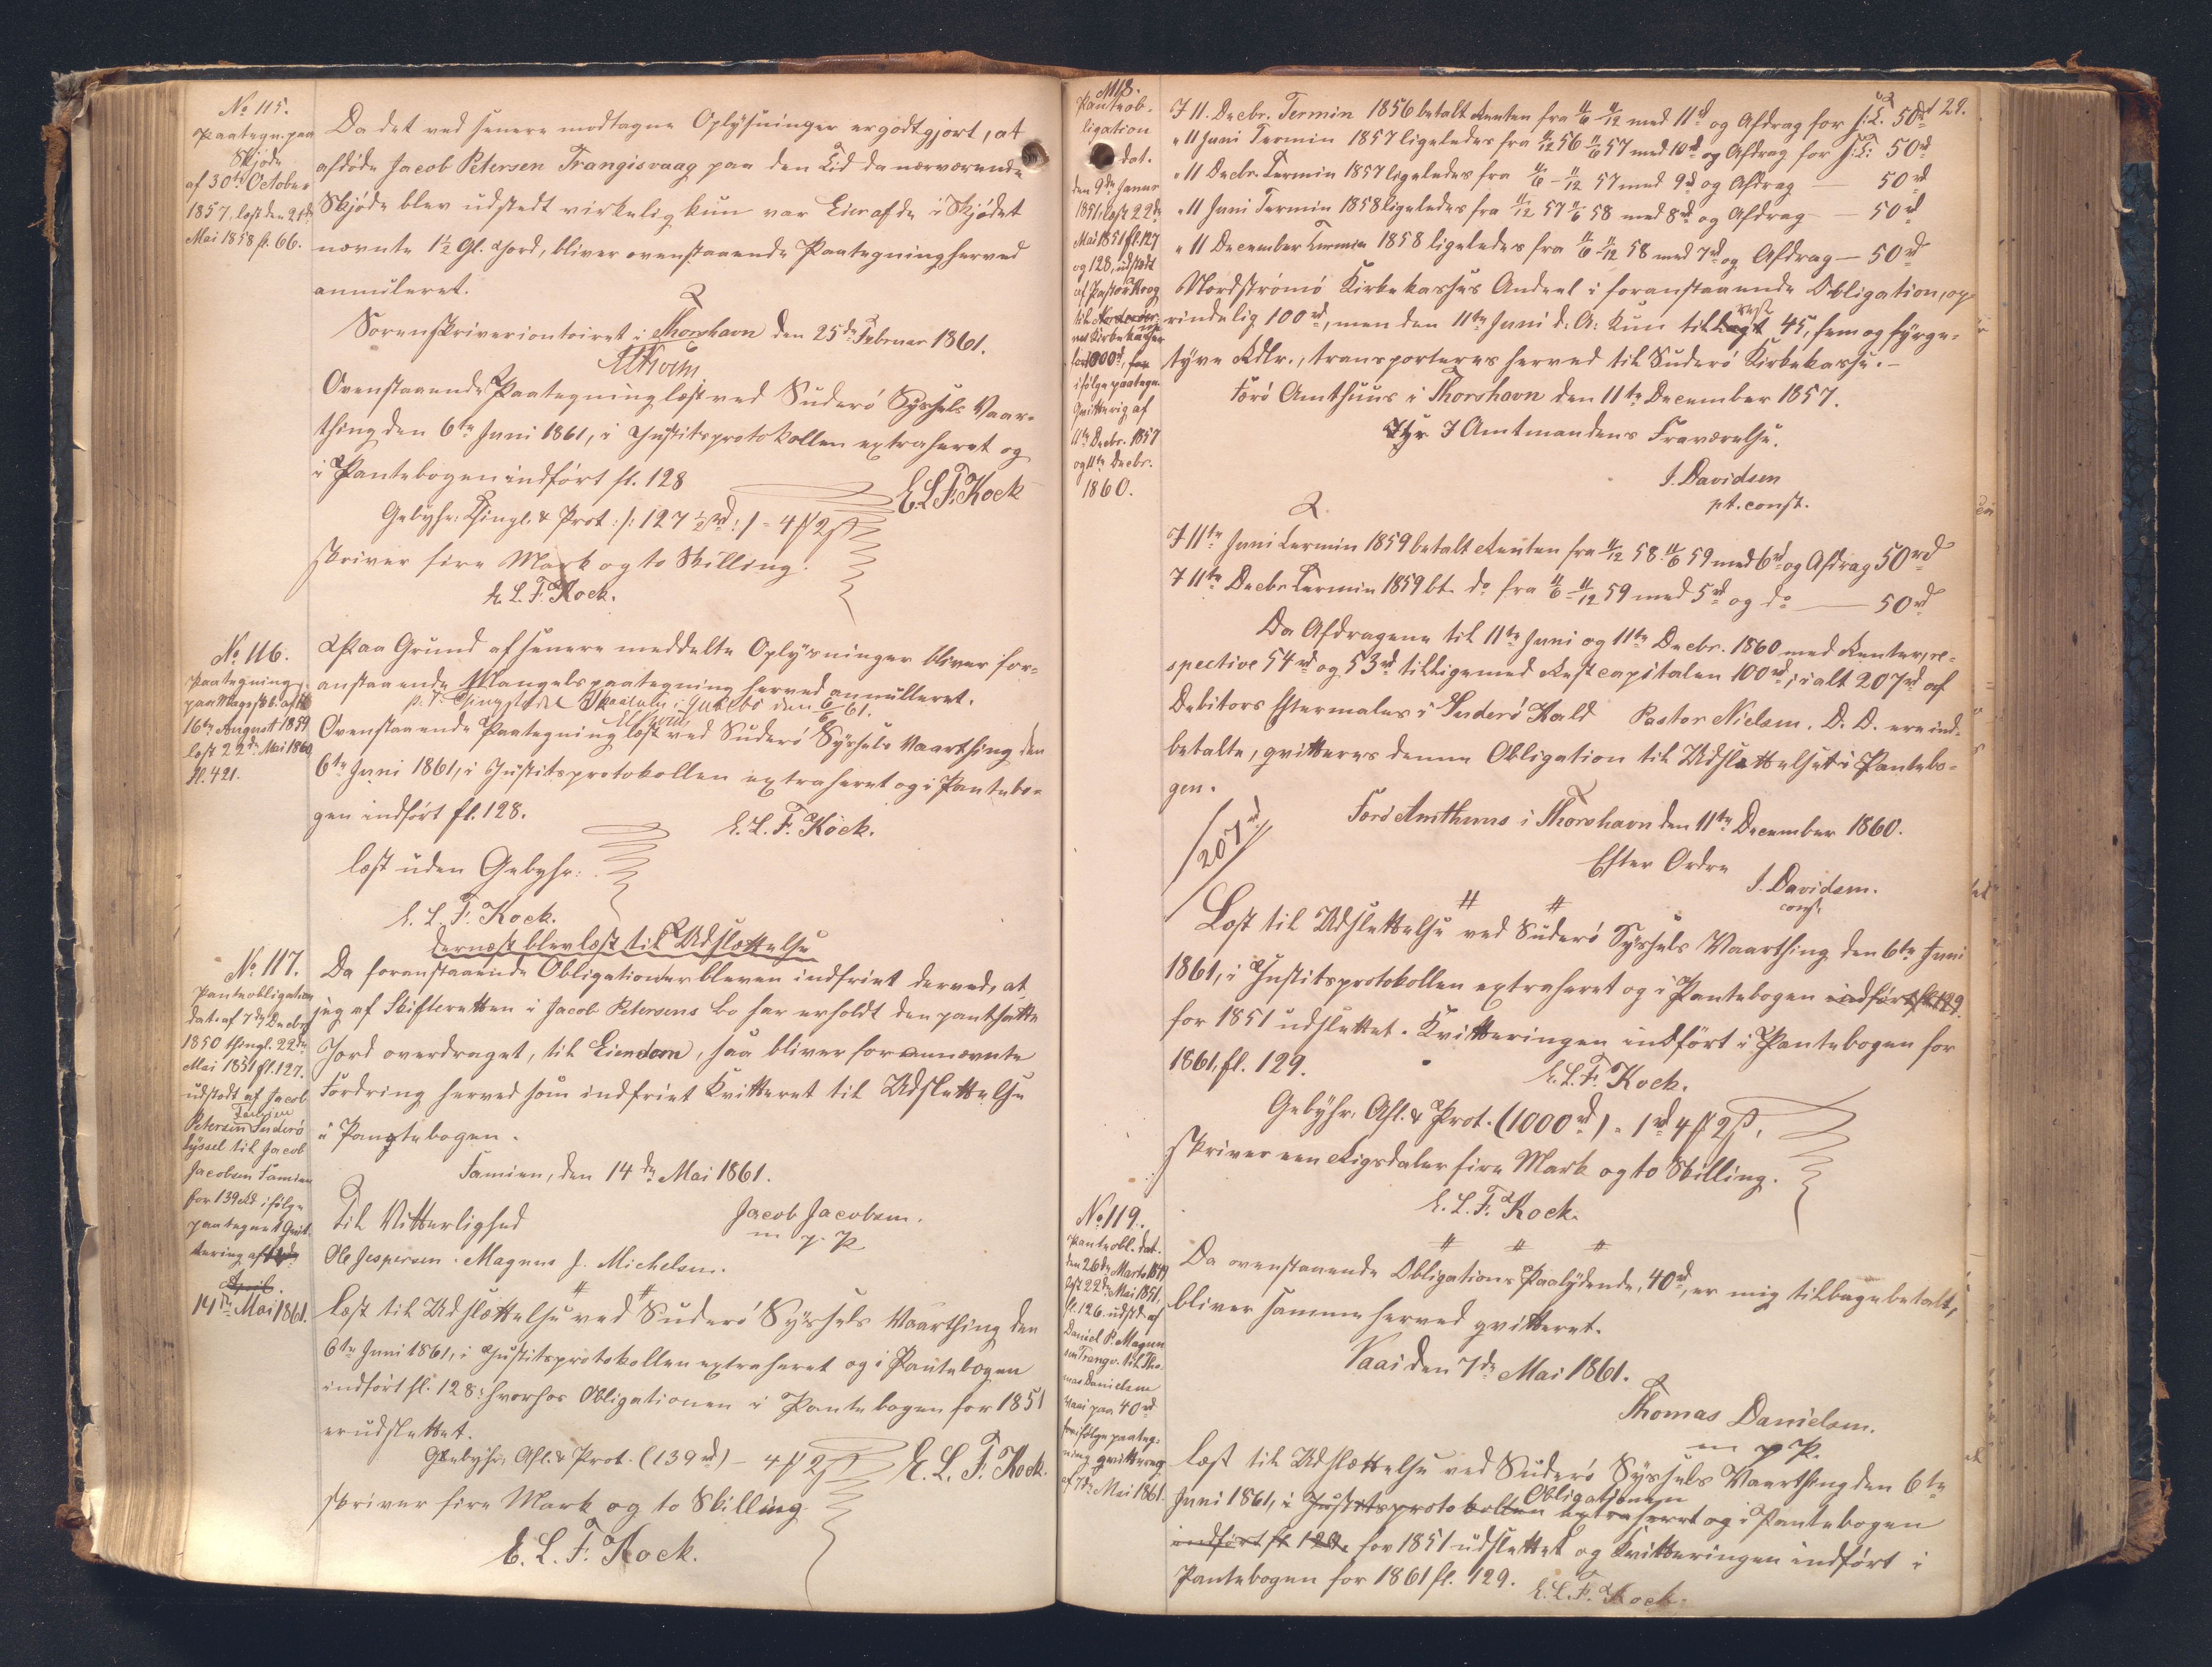 No 115.
Paategn. paa
Skjøde
af 30te October
1857, læst den 21de
Mai 1858 fl. 66.
Da det ved senere modtagne Oplysninger er godtgjort, at
afdøde Jacob Petersen Trangisvaag paa den Tid da nærværende
Skjøde blev udstedt virkelig kun var Eier af de i Skjødet
nævnte 1½ Gl. Jord, bliver ovenstaaende Paategning herved
annulleret.
Sorenskrivericontoiret i Thorshavn den 25de Februar 1861.
Ovenstaaende Paategning læst ved Suderø Syssels Vaar-
thing den 6te Juni 1861, i Justitsprotokollen extraheret og
i Pantebogen indført fl. 128
E. L. F. Kock
Gebyhr: Thingl. & Prot: /: 127½ rd :/ = 4 ₰ 2 ß
skriver fire Mark og to Skilling.
E. L. F. Kock.
No 116.
Paategning
paa
16te August 1859
læst 22de Mai 1860
fl. 421.
Paa Grund af senere meddelte Oplysninger bliver for-
anstaaende Mangelspaategning herved annulleret.
p. t. Thingstedet i Qualbø den 6/6 61.
Ovenstaaende Paategning læst ved Suderø Syssels Vaarthing den
6te Juni 1861, i Justitsprotokollen extraheret og i Pantebo-
gen indført fl. 128.
E. L. F. Kock.
læst uden Gebyhr:
E. L. F. Kock.
dernæst blev læst til Udslættelse
No 117.
Panteobligation
dat. af 7de Decbr
1850 thingl. 22de
Mai 1851 fl. 127.
udstedt af Jacob
Petersen Famien Suderø
Syssel til Jacob
Jacobsen Famien
for 139 Rd ifølge
paategnet Qvit-
tering af
April.
14de Mai 1861.
Da foranstaaende Obligation er bleven indfriet derved, at
jeg af Skifteretten i Jacob Petersens bo har erholdt den pantsatte
Jord overdraget, til Eiendom, saa bliver forannævnte
Fordring herved som indfriet kvitteret til Udslettelse
i Pantebogen.
Famien, den 14de Mai 1861.
Til Vitterlighed
Jacob Jacobsen.
m. p. P.
Ole Jespersen. Magnus J. Michelsen.
læst til Udslættelse ved Suderø Syssels Vaarthing den
6te Juni 1861, i Justitsprotokollen extraheret og i Pantebogen
indført fl. 128: hvorhos Obligationen i Pantebogen for 1851
er udslettet.
Gebyhr, Afl. & Prot. (139 rd) – 4 ₰ 2 ß
E. L. F. Kock.
skriver fire Mark og to Skilling
E. L. F. Kock.
118.
Panteob-
ligation
dat.
den 9de Januar
1851, læst 22de
Mai 1851 fl. 127
og 128, udstedt
af Pastor Krog
til
Kirkekasser
for 1000 rd,
ifølge paategn.
Qvittering af
11te Decbr. 1857
og 11te Decbr.
1860.
I 11. Decbr. Termin 1856 betalt Renten fra 11/6–11/12 med 11 rd og Afdrag for 50 rd
" 11 Juni Termin 1857 ligeledes fra 11/12 56 11/6 57 med 10 rd og Afdrag for 50 rd
" 11 Decbr. Termin 1857 ligeledes fra 11/6 – 11/12 57 med 9 rd og Afdrag — 50 rd
" 11 Juni Termin 1858 ligeledes fra 11/12 57 11/6 58 med 8 rd og Afdrag — 50 rd
" 11 December Termin 1858 ligeledes fra 11/6–11/12 58 med 7 rd og Afdrag — 50 rd
Nordstrømø Kirkekasses Andeel i foranstaaende Obligation, op-
rindelig 100 rd, men den 11te Juni d. A. kun 45, fem og fyrge-
tyve Rdlr., transporteres herved til Suderø Kirkekasse. –
Færø Amthuus i Thorshavn den 11te December 1857.
I Amtmandens Fraværelse.
J. Davidsen
pt. const.
I 11te Juni Termin 1859 betalt Renten fra 11/12 58–11/6 59 med 6 rd og Afdrag 50 rd
I 11te Decbr. Termin 1859 bt. do fra 11/6–11/12 59 med 5 rd og do — 50 rd
Da Afdragene til 11te Juni og 11te Decbr. 1860 med Renter, re-
spective 54 rd og 53 rd tilligemed Restcapitalen 100 rd, i alt 207 rd af
Debitors Eftermand i Suderø Kald Pastor Nielsen. D. D. ere ind-
betalte, qvitteres denne Obligation til Udslettelse i Pantebo-
gen.
Færø Amthuus i Thorshavn den 11te December 1860.
207 rd
Efter Ordre
J. Davidsen.
const.
Læst til Udslettelse ved Suderø Syssels Vaarthing den 6te Juni
1861, i Justitsprotokollen extraheret og i Pantebogen indført fl. 129.
for 1851 udslettet. Kvitteringen indført i Pantebogen for
1861, fl. 129.
E. L. F. Kock.
Gebyhr: Afl. & Prot. (1000 rd) = 1 rd 4 ₰ 2 ß,
skriver een Rigsdaler fire Mark og to Skilling.
E. L. F. Kock.
No 119.
Panteobl. dat.
den 26de Marts 1849
læst 22de Mai 1851,
fl. 126. udstd. af
Daniel P. Magnus
sen Trangv. til Tho-
mas Danielsen
Vaai paa 40 rd
ifølge paateg-
ning qvittering
af 7de Mai 1861.
Da ovenstaaende Obligations Paalydende, 40 rd, er mig tilbagebetalt,
bliver samme herved qvitteret.
Vaai den 7de Mai 1861.
Thomas Danielsen.
m p P.
læst til Udslættelse ved Suderø Syssels Vaarthing den 6te
Juni 1861, i Justitsprotokollen extraheret og Obligationen i Pantebogen
indført fl 129. for 1851 udslettet og Kvitteringen indført i
Pantebogen for 1861 fl. 129.
E. L. F. Kock.